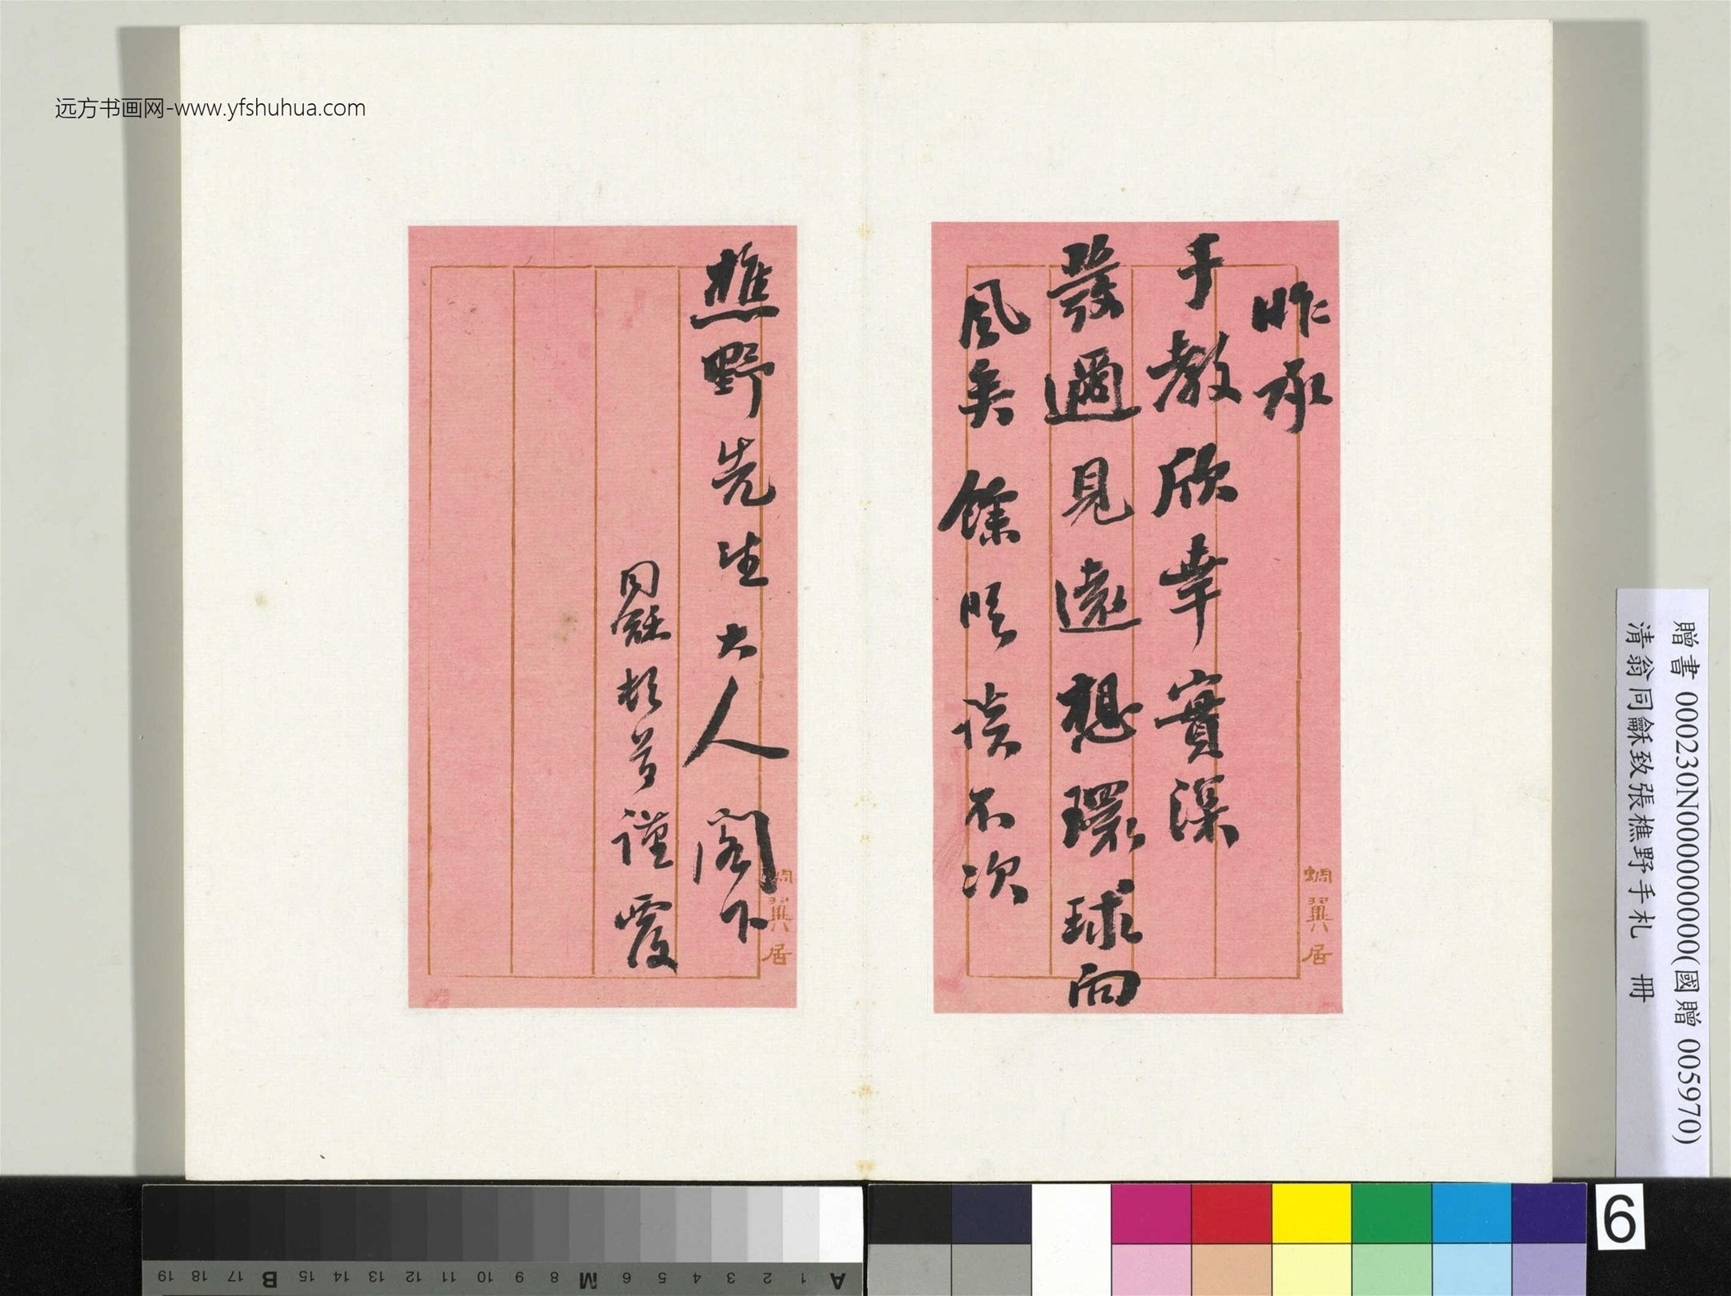 远方书画网-www.yfshuhua.com
昨承
手教欣幸實深
發邇見遠想環球向
風矣餘晤談不次
蜩翼居
樵野先生大人閣下
同龢頓首謹覆
蜩翼居
贈書 000230N000000000(國贈 005970)
清翁同龢致張樵野手札 冊
6
A 1 2 3 4 5 6 M 8 9 10 11 12 13 14 15 B 17 18 19